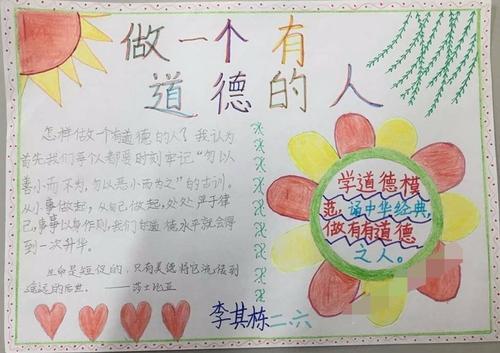 做一个有
道德的人
怎样做一个有道德的人？我认为
首先我们每个都要时刻牢记“勿以
善小而不为，勿以恶小而为之”的古训。
从小事做起，从自己做起，处处严于律
己，事事以身作则，我们道德水平就会得
到一次升华。
生命是短促的，只有美德将它流传到
遥远的后世。——莎士比亚
学道德模
范，诵中华经典，
做有有道德
之人。
李其栋二六